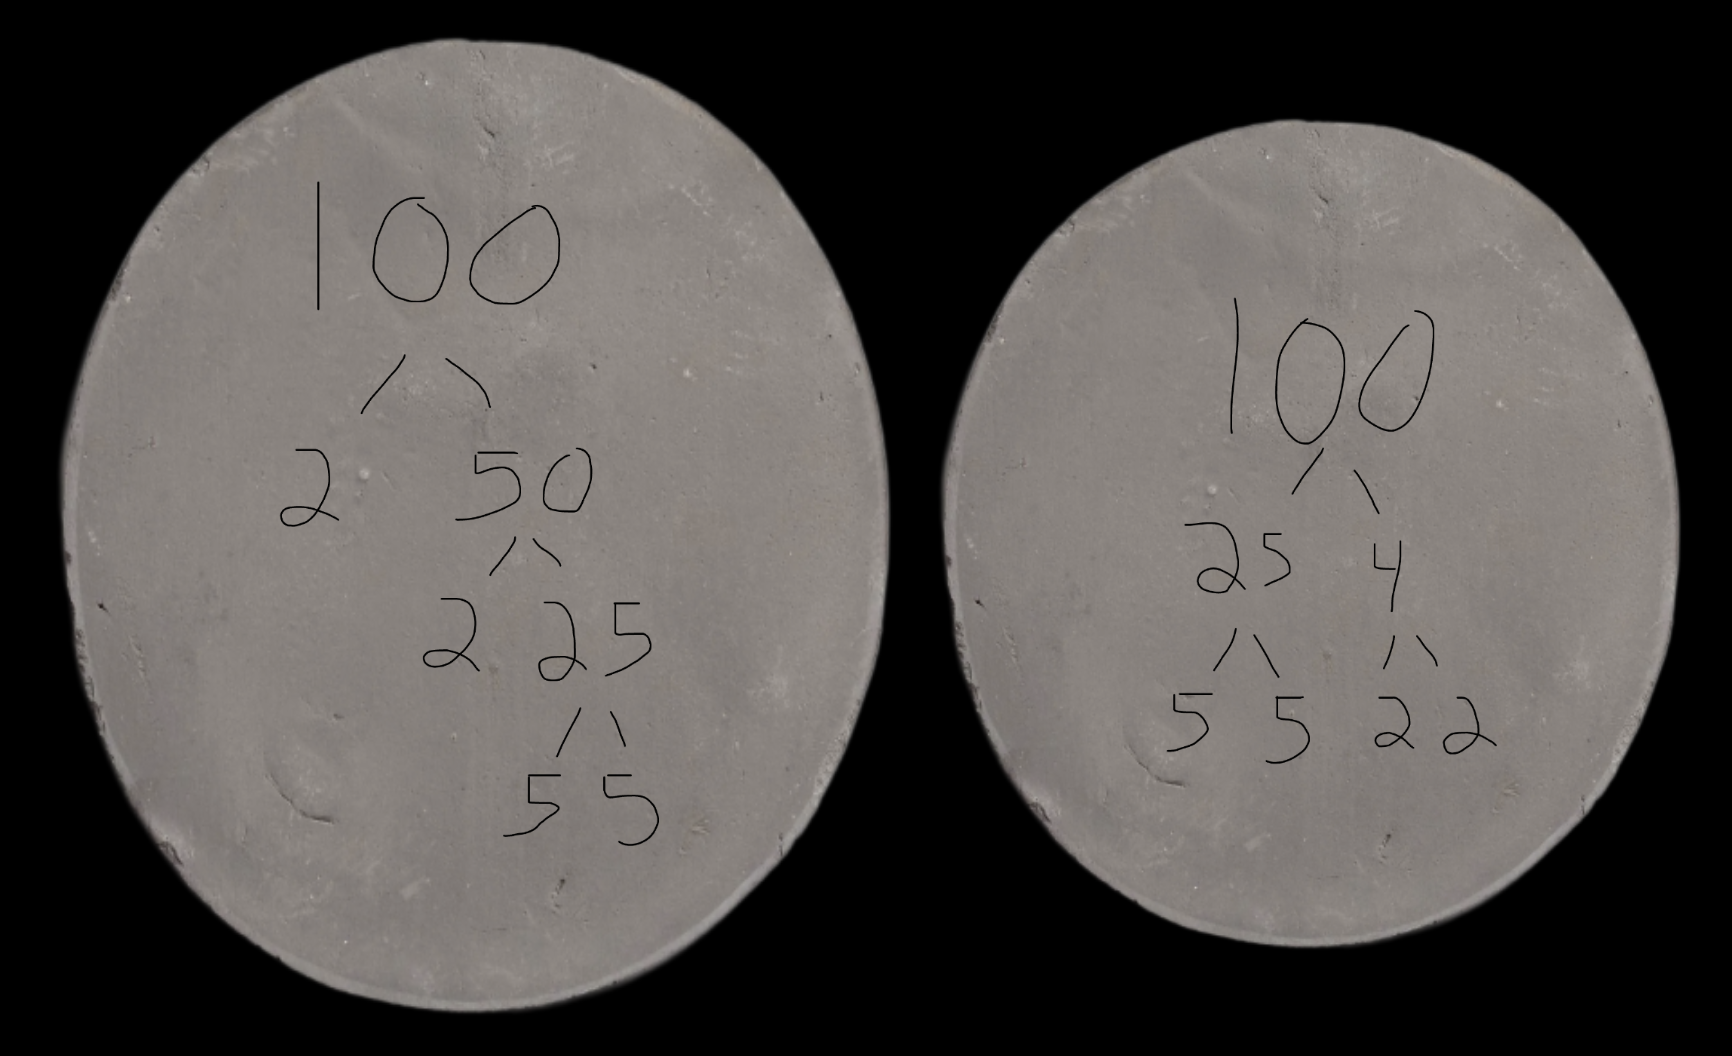 100
2 50
2 25
5 5
100
25 4
5 5 2 2